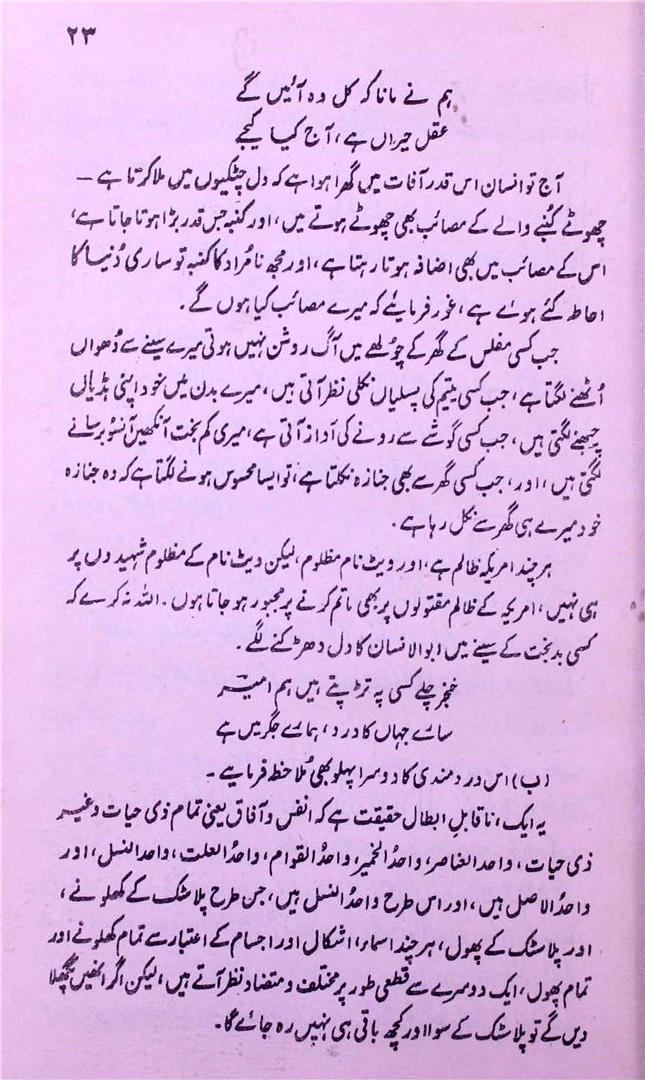 ۲۳
ہم نے مانا کہ کل وہ آئیں گے
عقل حیراں ہے ، آج کیا کیجے
آج تو انسان اس قدر آفات میں گھرا ہوا ہے کہ دل چٹکیوں میں ملا کرتا ہے ۔
چھوٹے کُنبے والے کے مصائب بھی چھوٹے ہوتے ہیں ، اور کنبہ جس قدر بڑا ہوتا جاتا ہے ،
اس کے مصائب میں بھی اضافہ ہوتا رہتا ہے ، اور مجھ نامُراد کا کنبہ تو ساری دُنیا کا
احاطہ کئے ہوئے ہے ، غور فرمایئے کہ میرے مصائب کیا ہوں گے ۔
جب کسی مفلس کے گھر کے چولھے میں آگ روشن نہیں ہوتی میرے سینے سے دُھواں
اُٹھنے لگتا ہے ، جب کسی یتیم کی پسلیاں نکلی نظر آتی ہیں ، میرے بدن میں خود اپنی ہڈیاں
چبھنے لگتی ہیں ، جب کسی گوشے سے رونے کی آواز آتی ہے ، میری کم بخت آنکھیں آنسو برسانے
لگتی ہیں ، اور ، جب کسی گھر سے بھی جنازہ نکلتا ہے ، تو ایسا محسوس ہونے لگتا ہے کہ وہ جنازہ
خود میرے ہی گھر سے نکل رہا ہے ۔
ہر چند امریکہ ظالم ہے ، اور ویٹ نام مظلوم ، لیکن ویٹ نام کے مظلوم شہیدوں پر
ہی نہیں ، امریکہ کے ظالم مقتولوں پر بھی ماتم کرنے پر مجبور ہو جاتا ہوں ۔ اللہ نہ کرے کہ
کسی بدبخت کے سینے میں ابوالانسان کا دل دھڑکنے لگے ۔
خنجر چلے کسی پہ تڑپتے ہیں ہم امیرؔ
سارے جہاں کا درد ، ہمارے جگر میں ہے
(ب) اس دردمندی کا دوسرا پہلو بھی مُلاحظہ فرمایئے ۔
یہ ایک ، ناقابلِ ابطال حقیقت ہے کہ انفس و آفاق یعنی تمام ذی حیات و غیر
ذی حیات ، واحد العناصر ، واحدُ الخمیر ، واحدُ القوام ، واحدُ العلت ، واحد النسل ، اور
واحدُ الاصل ہیں ، اور اس طرح واحدُ النسل ہیں ، جن طرح پلاسٹک کے کھلونے ،
اور پلاسٹک کے پھول ، ہر چند اسماء ، اشکال اور اجسام کے اعتبار سے تمام کھلونے اور
تمام پھول ، ایک دوسرے سے قطعی طور پر مختلف و متضاد نظر آتے ہیں ، لیکن اگر انھیں پگھلا
دیں گے تو پلاسٹک کے سوا اور کچھ باقی ہی نہیں رہ جائے گا ۔